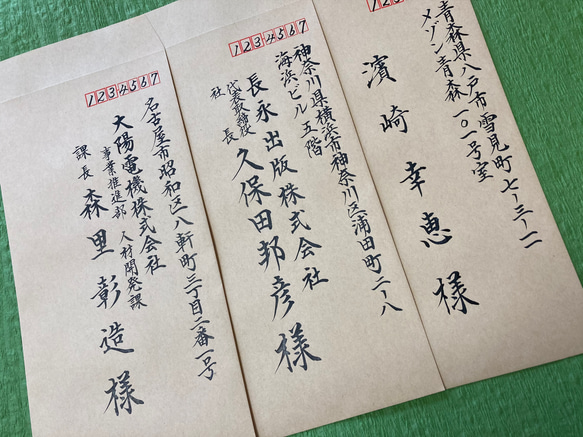 123
青森県八戸市雪見町七ー三ー一一
メゾン青森一〇一号室
濱崎幸恵様
1234567
神奈川県横浜市神奈川区浦田町二ー八
海浜ビル五階
長永出版株式会社
代表取締役
社長 久保田邦彦様
1234567
名古屋市昭和区八軒町三丁目二番一号
大陽電機株式会社
事業推進部 人材開発課
課長 森里彰造様